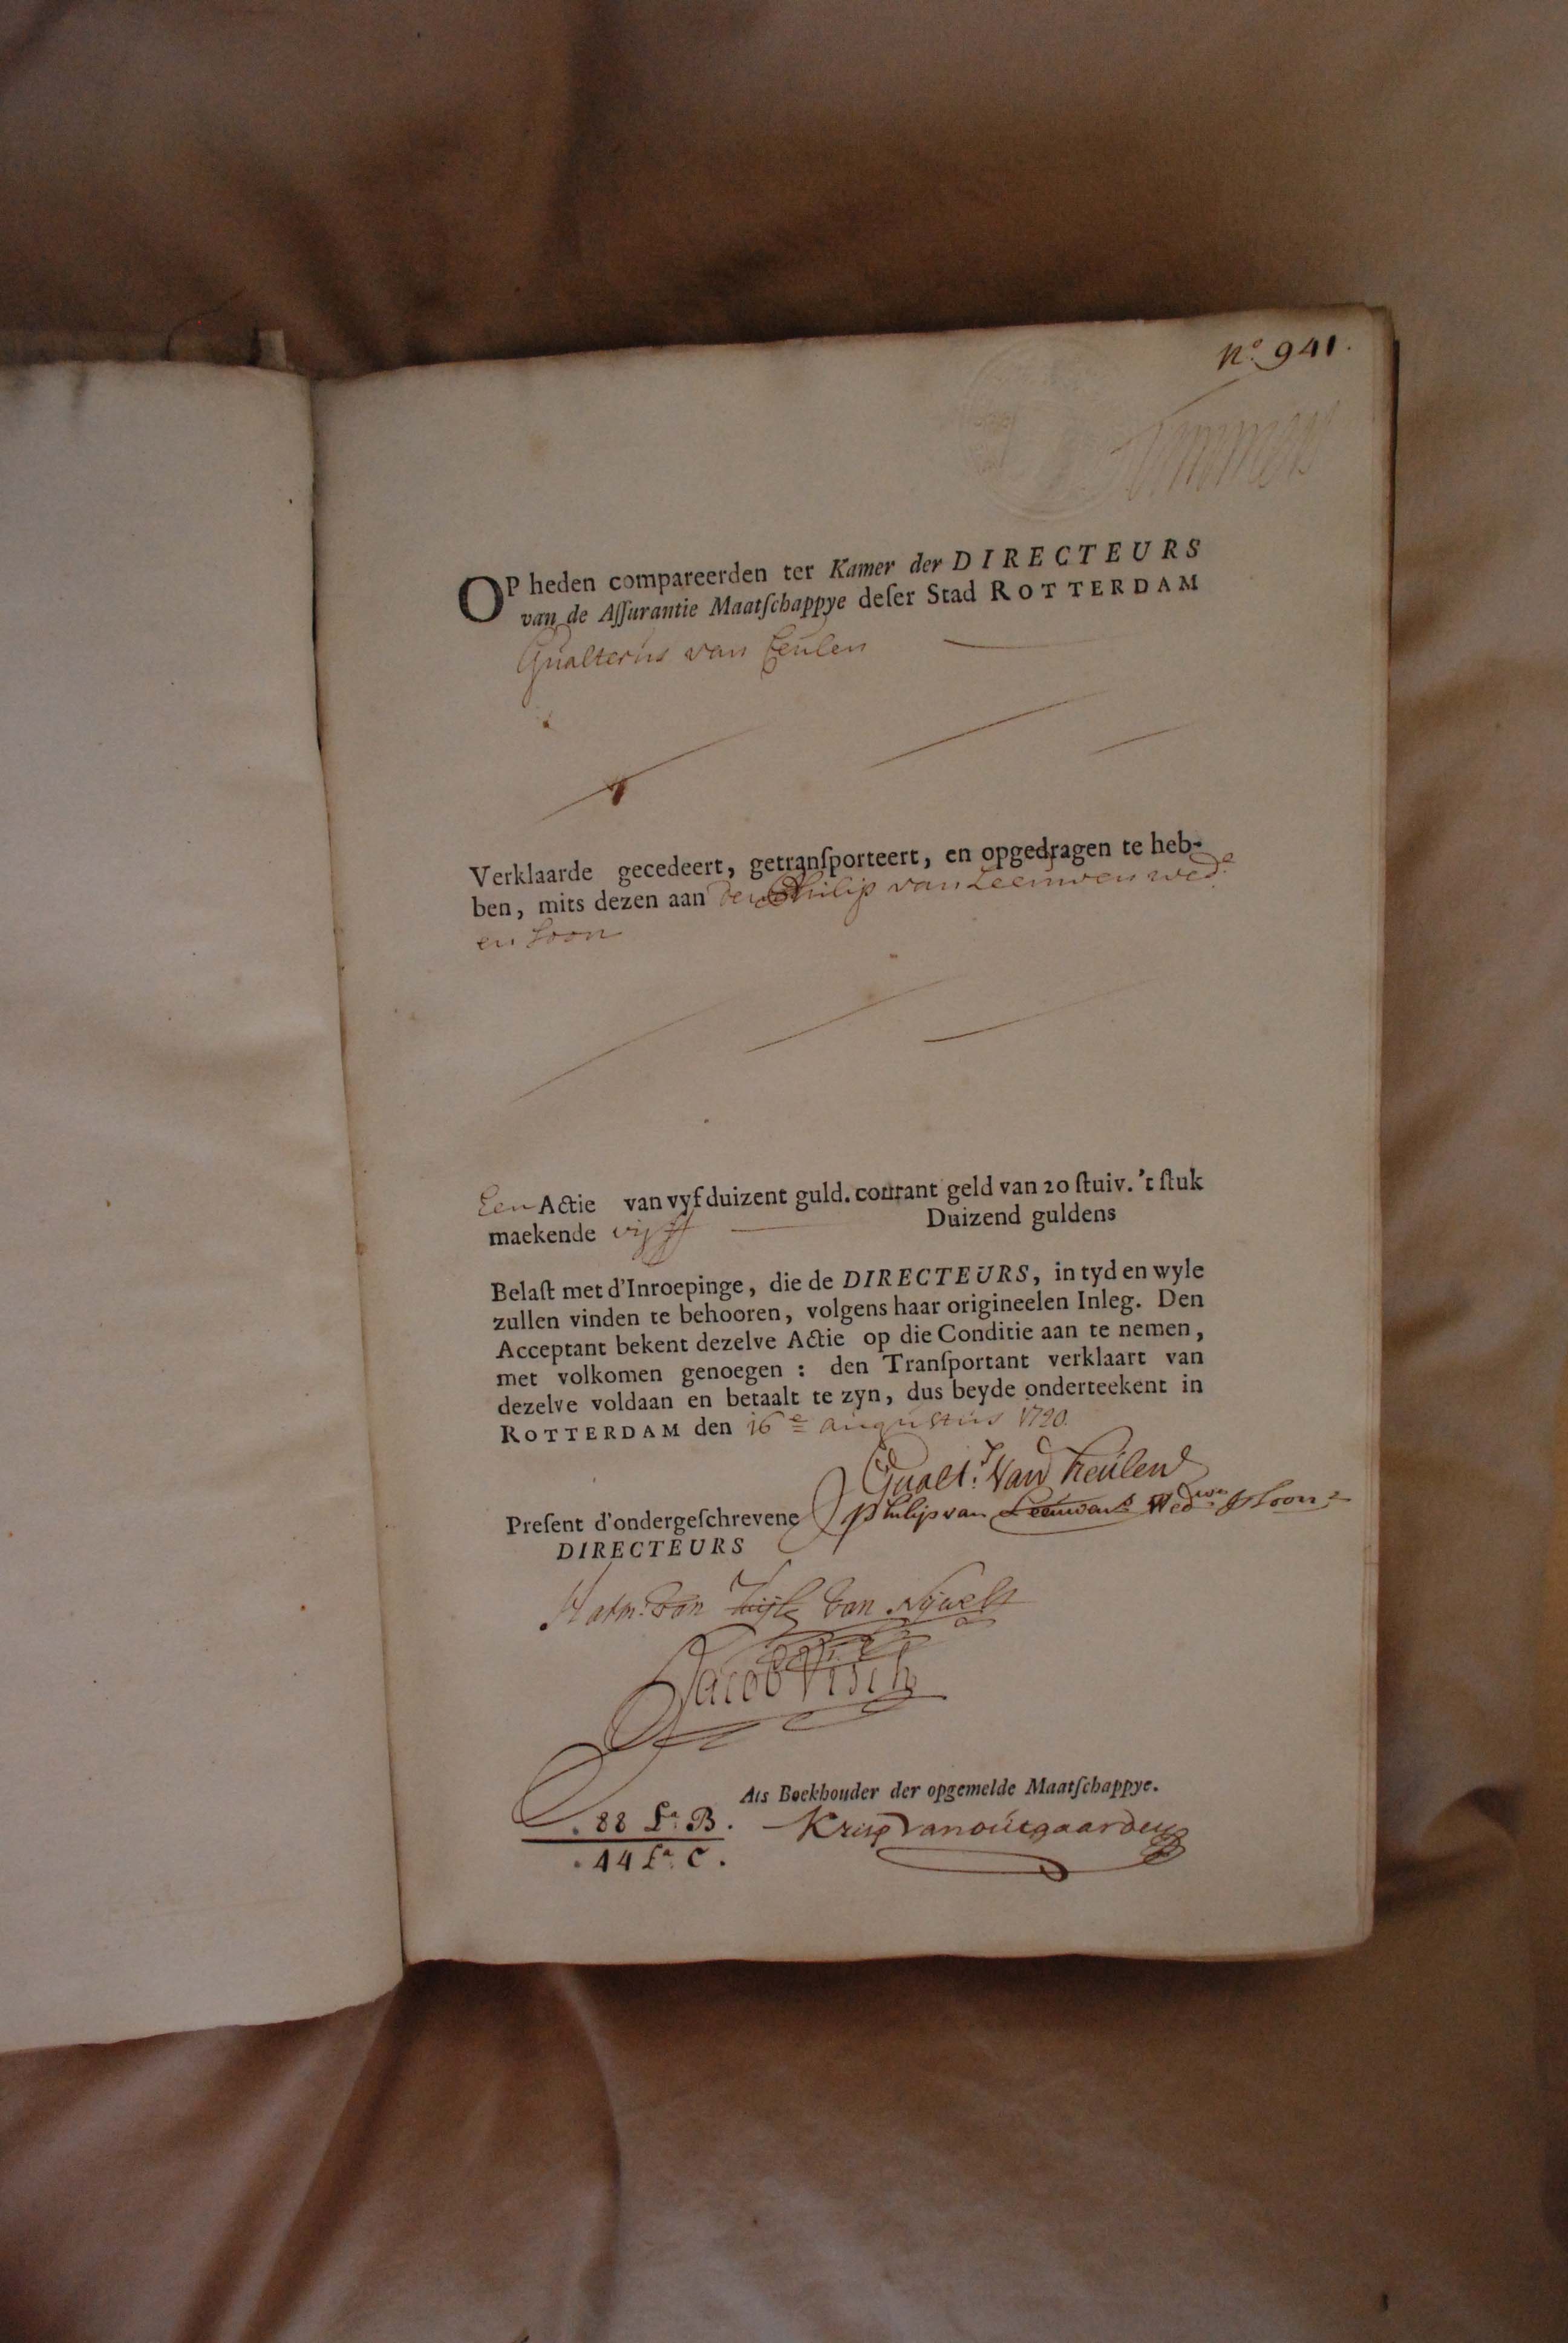 No. 941.
OP heden compareerden ter Kamer der DIRECTEURS
van de Aſſurantie Maatſchappye deſer Stad ROTTERDAM
Gualterus van Ceulen
Verklaarde gecedeert, getranſporteert, en opgedragen te heb-
ben, mits dezen aan Philip van Leeuwen wede.
en Soon
Een Actie van vyf duizent guld. courant geld van 20 ſtuiv. 't ſtuk
maekende vijff Duizend guldens
Belaſt met d'Inroepinge, die de DIRECTEURS, in tyd en wyle
zullen vinden te behooren, volgens haar origineelen Inleg. Den
Acceptant bekent dezelve Actie op die Conditie aan te nemen,
met volkomen genoegen : den Tranſportant verklaart van
dezelve voldaan en betaalt te zyn, dus beyde onderteekent in
ROTTERDAM den 16e augustus 1720.
Gualts. Van Ceulen
Preſent d'ondergeſchrevene Philip van Leeuwen Wedwe. & Soon
DIRECTEURS
van Zuijl van Nijvelt
Jacob Visch
Als Boekhouder der opgemelde Maatſchappye.
88 La. B. Krisp van outgaarden
44 La. C.